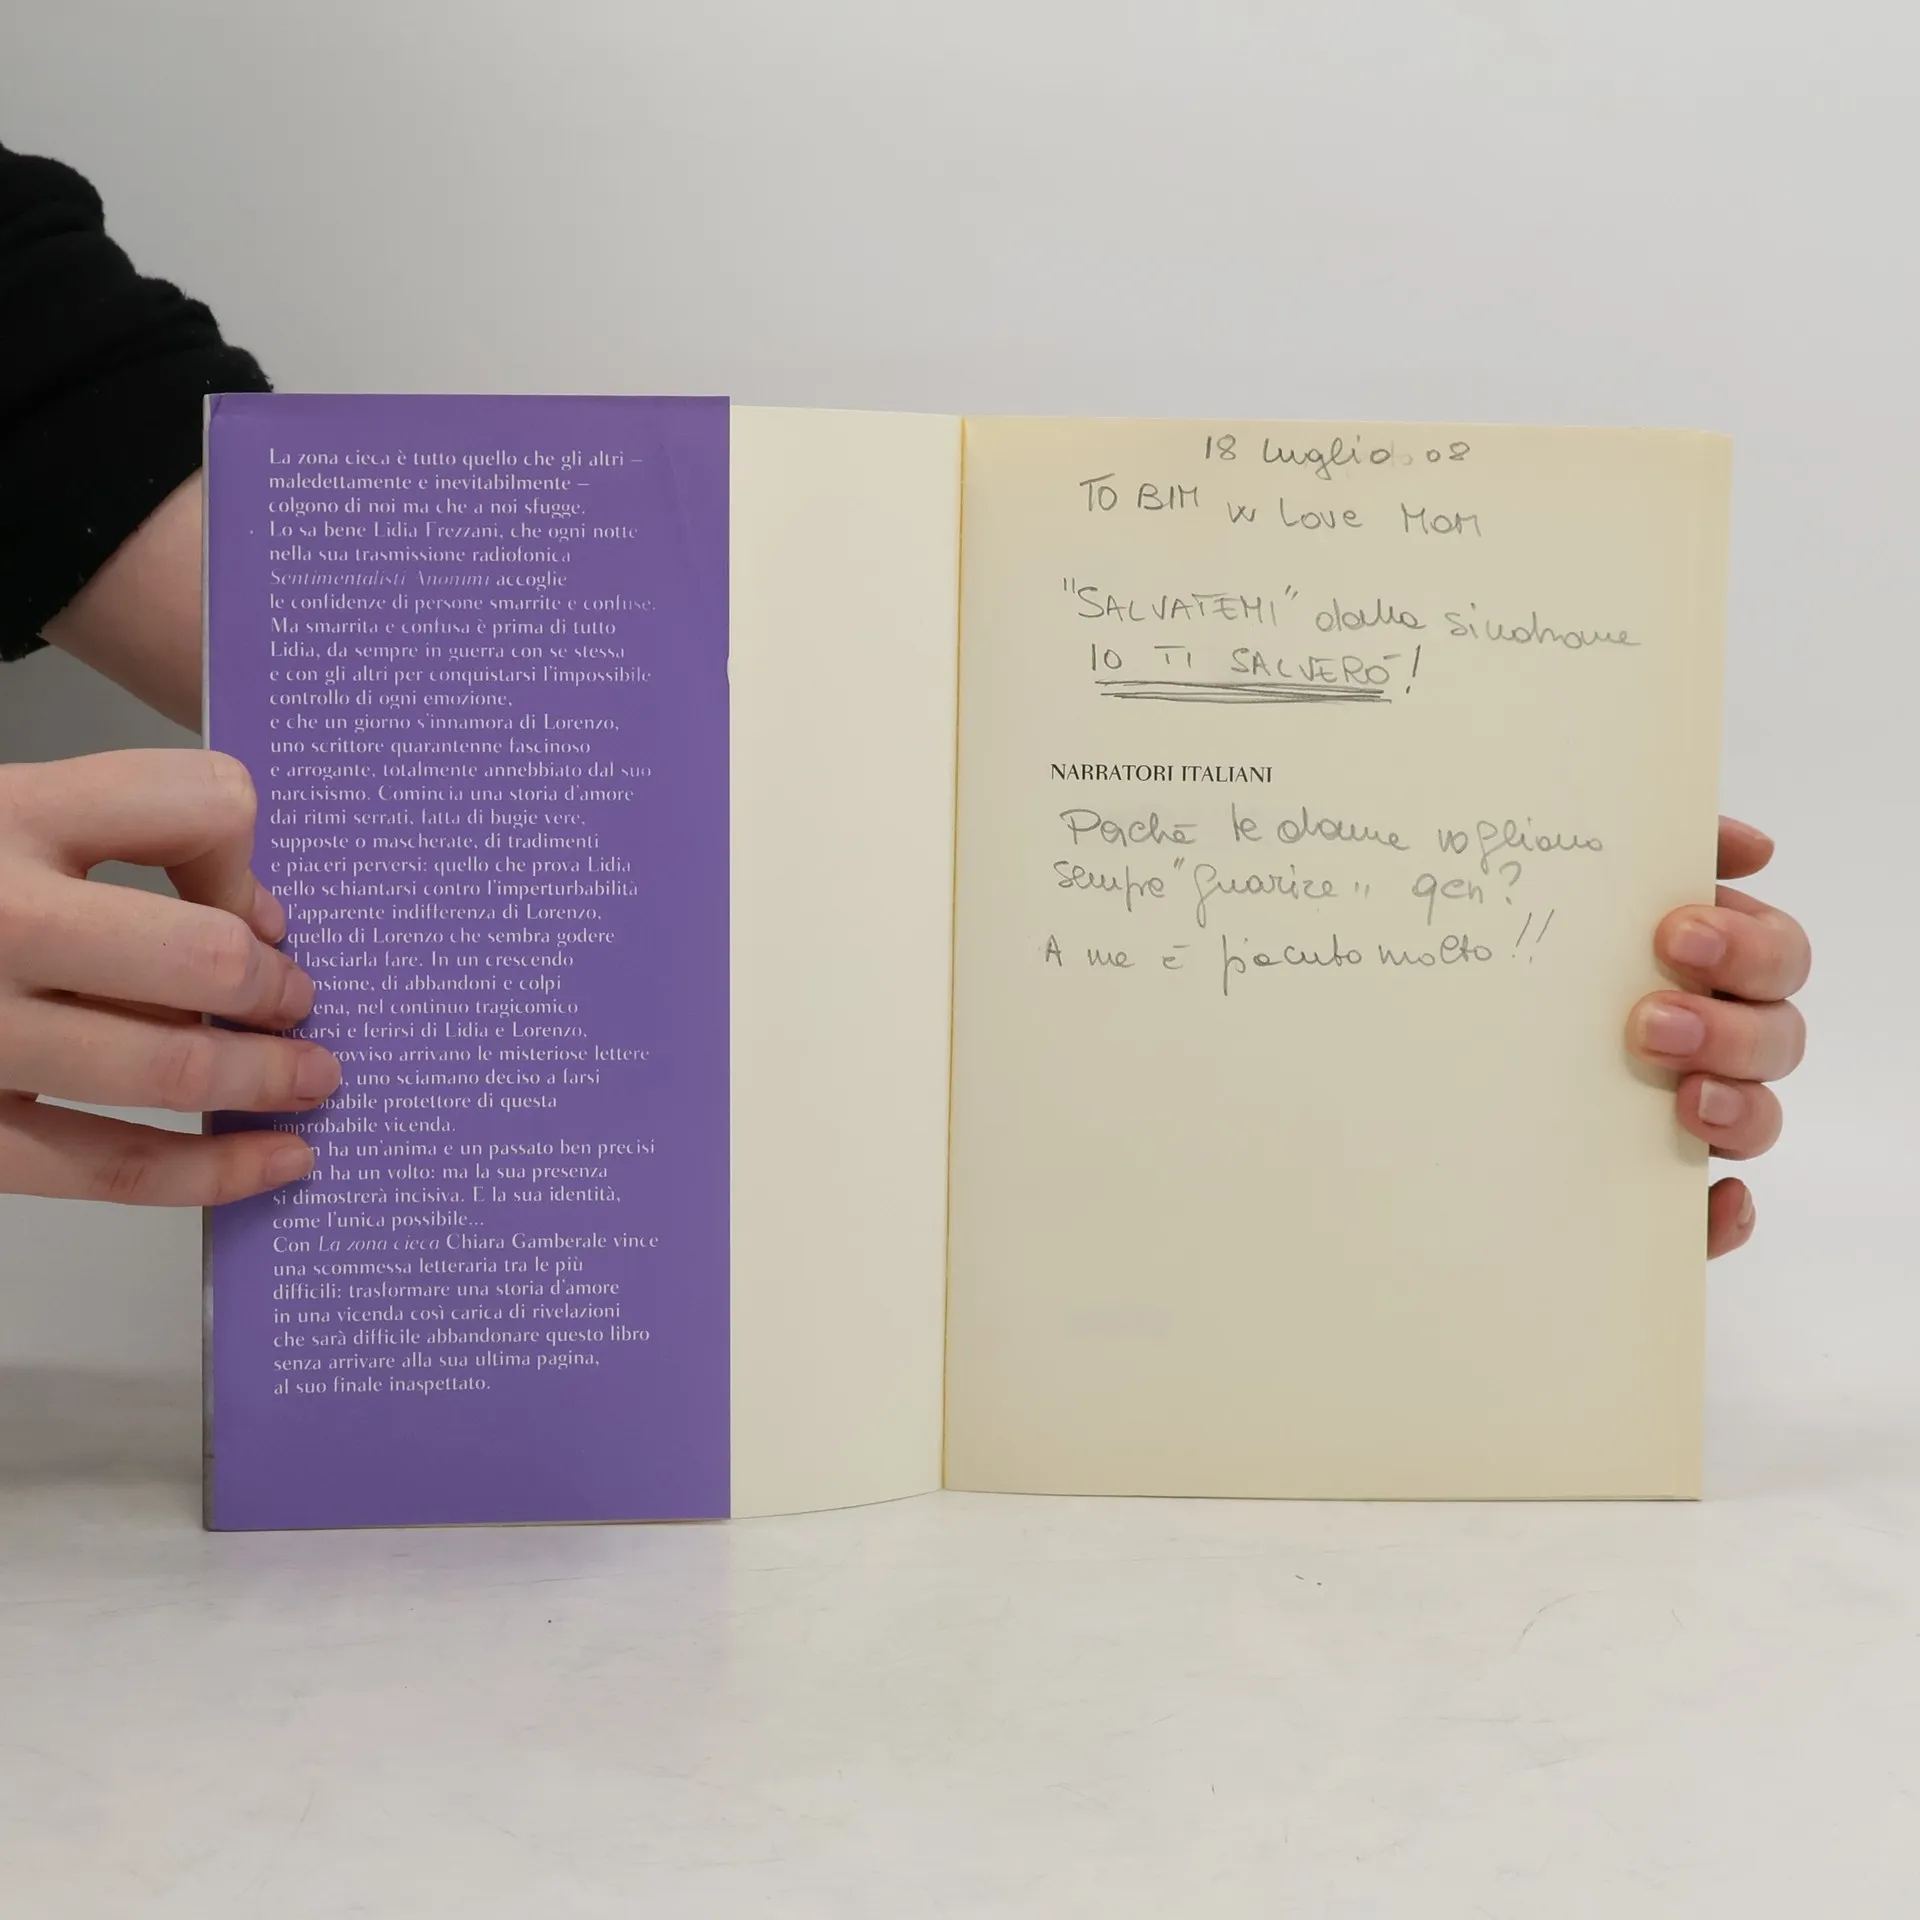 La zona cieca è tutto quello che gli altri –
maledettamente e inevitabilmente –
colgono di noi ma che a noi sfugge.
Lo sa bene Lidia Frezzani, che ogni notte
nella sua trasmissione radiofonica
Sentimentalisti Anonimi accoglie
le confidenze di persone smarrite e confuse.
Ma smarrita e confusa è prima di tutto
Lidia, da sempre in guerra con se stessa
e con gli altri per conquistarsi l'impossibile
controllo di ogni emozione,
e che un giorno s'innamora di Lorenzo,
uno scrittore quarantenne fascinoso
e arrogante, totalmente annebbiato dal suo
narcisismo. Comincia una storia d'amore
dai ritmi serrati, fatta di bugie vere,
supposte o mascherate, di tradimenti
e piaceri perversi: quello che prova Lidia
nello schiantarsi contro l'imperturbabilità
l'apparente indifferenza di Lorenzo,
quello di Lorenzo che sembra godere
lasciarla fare. In un crescendo
nsione, di abbandoni e colpi
ena, nel continuo tragicomico
ercarsi e ferirsi di Lidia e Lorenzo,
rovviso arrivano le misteriose lettere
, uno sciamano deciso a farsi
obabile protettore di questa
improbabile vicenda.
n ha un'anima e un passato ben precisi
on ha un volto: ma la sua presenza
si dimostrerà incisiva. E la sua identità,
come l'unica possibile...
Con La zona cieca Chiara Gamberale vince
una scommessa letteraria tra le più
difficili: trasformare una storia d'amore
in una vicenda così carica di rivelazioni
che sarà difficile abbandonare questo libro
senza arrivare alla sua ultima pagina,
al suo finale inaspettato.
18 Luglio 08
TO BIM W Love MOM
"SALVATEMI" dalla sindrome
IO TI SALVERÒ!
NARRATORI ITALIANI
Perché le donne vogliono
sempre "guarire" gen?
A me è piaciuto molto!!